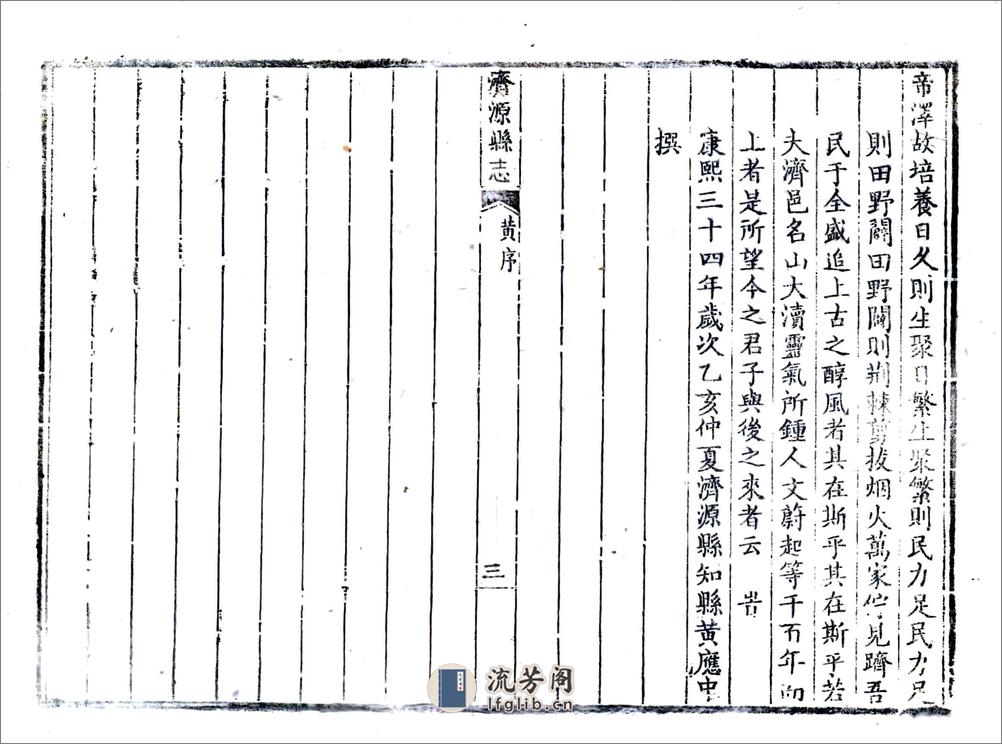 帝澤故培養日久則生聚日繁生聚繁則民力足民力足
則田野闢田野闢則荆棘剪拔烟火萬家佇見躋吾
民于全盛追上古之醇風者其在斯乎其在斯乎若
夫濟邑名山大瀆靈氣所鍾人文蔚起等千百年而
上者是所望今之君子與後之來者云 旹
康熙三十四年歲次乙亥仲夏濟源縣知縣黃應中
撰
濟源縣志
黄序
三
流芳阁
lfglib.cn